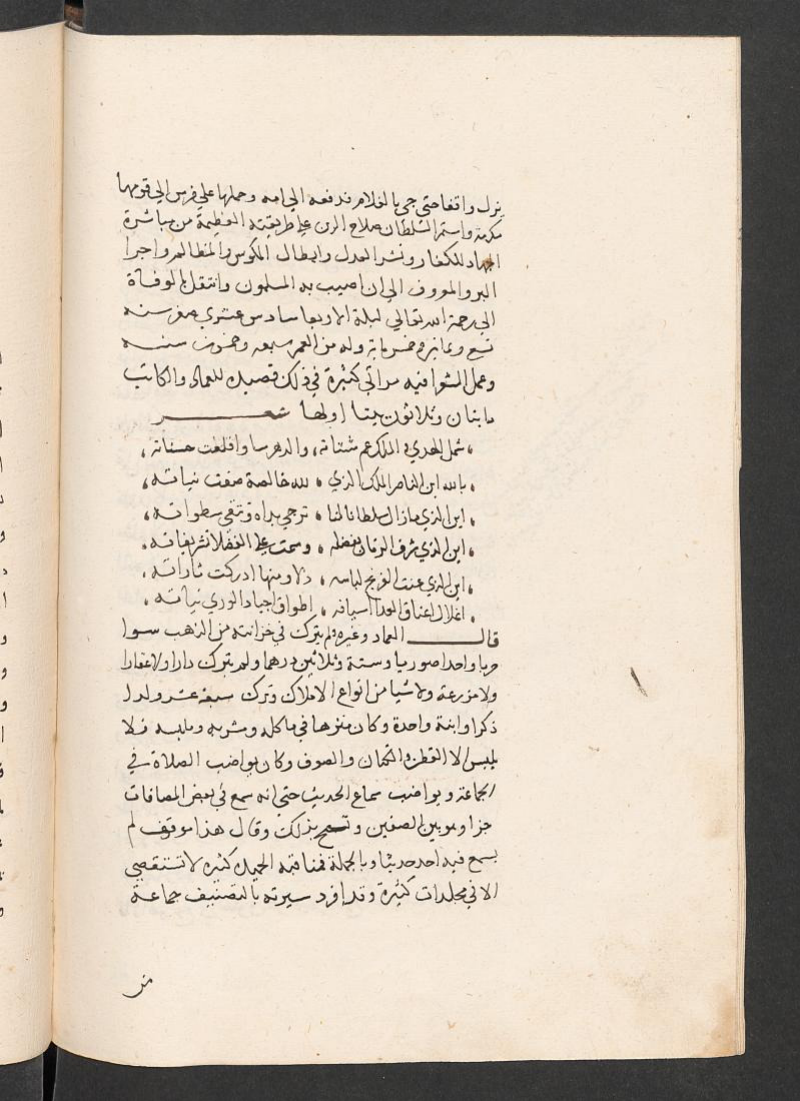 نزل واقفا حتى جي بالغلام فدفعه الي امه وحملها علي فرس الي قومها
مكرمة واستمر السلطان صلاح الدين علي طريقته العظيمة من مباشرة
الجهاد للكفار ونشر العدل وابطال المكوس والمظالم واجرا
البر والمعروف الي ان اصيب به المسلمون وانتقل بالوفاة
الي رحمة الله تعالي ليلة الاربعا سادس عشري صفر سنه
تسع وثمانين وخمسماية وله من العمر سبعه وخمسون سنه
وعمل الشعرا فيه مراثي كثيرة في ذلك قصيدة للعماد الكاتب
مايتان وثلاثون بيتا اولها شعر
، شمل الهدي والملك عم شتاته ، والدهر ساوا قلعت حسناته ،
، بالله اين الناصر الملك الذي ، لله خالصة صفت نياته ،
، اين الذي مازال سلطانا لنا ، ترجي نداه وتتقي سطواته ،
، اين الذي شرف الزمان بفضله ، وسمت علي الفضلا تشريفاته ،
، اين الذي عنت الفرنج لباسه ، ذلا ومنها ادركت ثاراته ،
، اغلال اعناق العدا اسيافه ، اطواق اجياد الوري نياته ،
قال العماد وغيره لم يترك في خزانته من الذهب سوا
جرما واحدا صوريا وستة وثلاثين درهما ولم يترك دارا ولا عقارا
ولا مزرعة ولا شيا من انواع الاملاك وترك سبعة عشر ولدا
ذكرا وابنة واحدة وكان متنزها في ماكله ومشربه وملبسه فلا
يلبس الا القطن والكتان والصوف وكان يواضب الصلاة في
الجماعة ويواضب سماع الحديث حتي انه سمع في بعض المصافات
جزا وهو بين الصفين وتبجح بذلك وقال هذا موقف لم
يسمع فيه احد حديثا وبالجملة فمناقبه الحميدة كثيرة لا تستقصي
الا في مجلدات كثيرة وقد افرد سيرته بالتصنيف جماعة
من